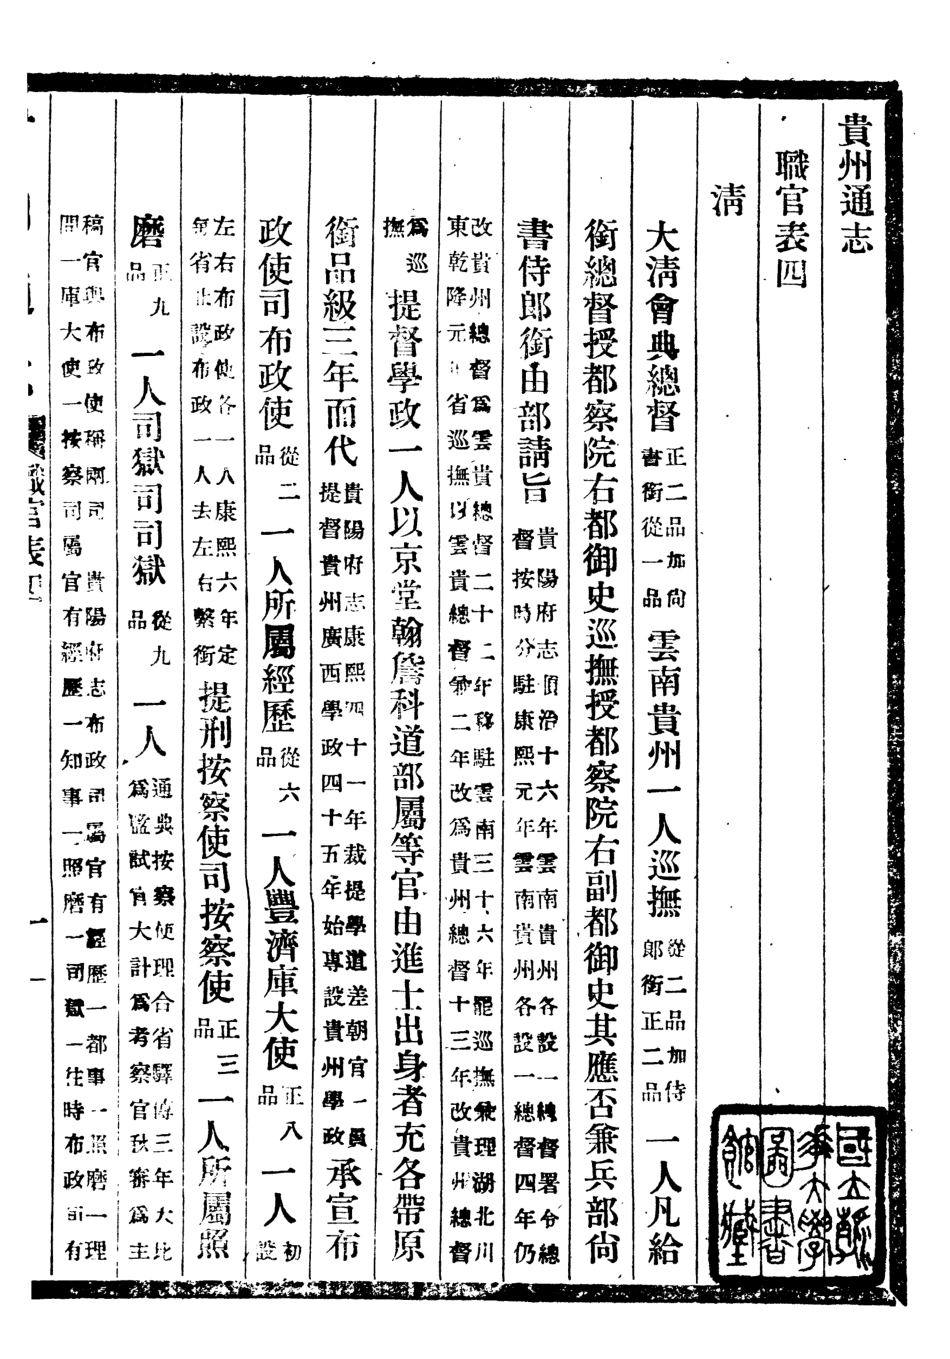 貴州通志
職官表四
清
大清會典總督正二品加尚書銜從一品雲南貴州一人巡撫從二品加侍郎銜正二品一人凡給
銜總督授都察院右都御史巡撫授都察院右副都御史其應否兼兵部尙
書侍郎銜由部請旨貴陽府志順治十六年雲南貴州各設一總督署令總督按時分駐康熙元年雲南貴州各設一總督四年仍
改貴州總督爲雲貴總督二十二年移駐雲南三十六年罷巡撫兼理湖北川東乾隆元年省巡撫以雲貴總督領二年改爲貴州總督十三年改貴州總督
爲巡撫提督學政一人以京堂翰詹科道部屬等官由進士出身者充各帶原
銜品級三年而代貴陽府志康熙四十一年裁提學道差朝官一員提督貴州廣西學政四十五年始專設貴州學政承宣布
政使司布政使從二品一人所屬經歷從六品一人豐濟庫大使正八品一人初設
左右布政使各一人康熙六年定每省止設布政一人去左右繫銜提刑按察使司按察使正三品一人所屬照
磨正九品一人司獄司司獄從九品一人通典按察使理合省驛傳三年大比爲監試官大計爲考察官秋審爲主
稿官與布政使稱兩司貴陽府志布政司屬官有經歷一都事一照磨一理問一庫大使一按察司屬官有經歷一知事一照磨一司獄一往時布政司有
職官表四
一
國立清華大學圖書館藏